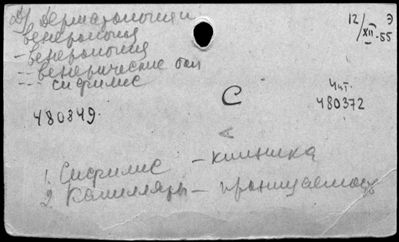 Д) Дерматология и
венерология
12/XII-55 Э
- венерология
-- венерические бол
--- сифилис
С
Чит.
480349.
480372
1. Сифилис - клиника
2. Капилляры - проницаемость